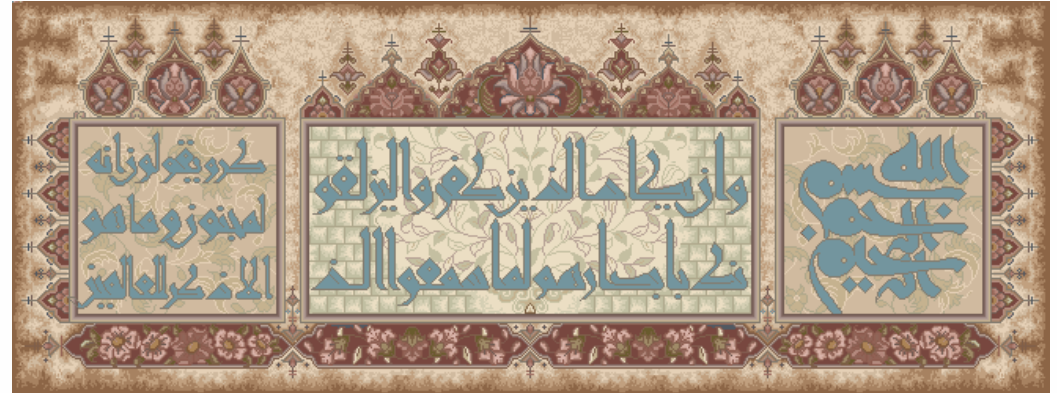 بسم الله
الرحمن
الرحيم
وان يكاد الذين كفروا ليزلقو
نك بابصارهم لما سمعوا الذ
كر ويقولون انه
لمجنون وما هو
الا ذكر للعالمين